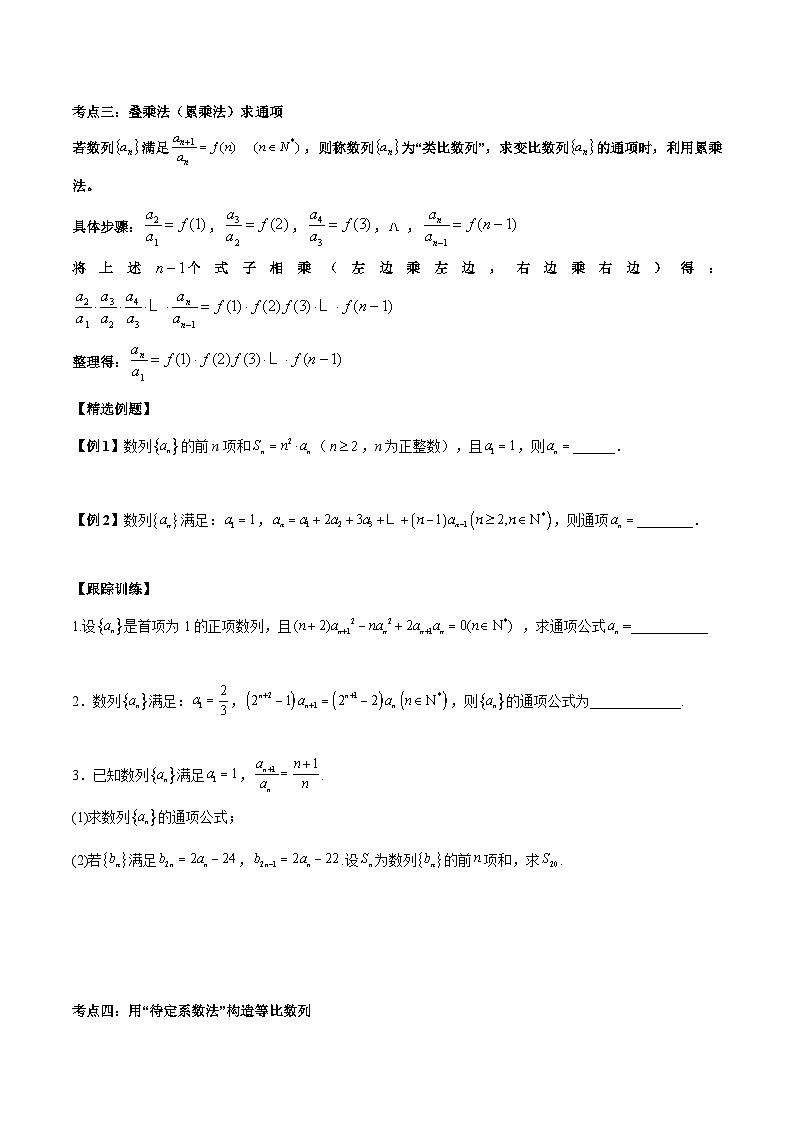 考点三：叠乘法（累乘法）求通项
若数列{aₙ}满足aₙ₊₁/aₙ = f(n)　(n∈N*)，则称数列{aₙ}为“类比数列”，求变比数列{aₙ}的通项时，利用累乘
法。
具体步骤：a₂/a₁ = f(1)，a₃/a₂ = f(2)，a₄/a₃ = f(3)，Λ，aₙ/aₙ₋₁ = f(n−1)
将上述 n−1个式子相乘（左边乘左边，右边乘右边）得：
a₂/a₁ · a₃/a₂ · a₄/a₃ · L · aₙ/aₙ₋₁ = f(1)·f(2)f(3)·L·f(n−1)
整理得：aₙ/a₁ = f(1)·f(2)f(3)·L·f(n−1)
【精选例题】
【例1】数列{aₙ}的前n项和Sₙ = n²·aₙ（n≥2，n为正整数），且a₁ = 1，则aₙ = ______．
【例2】数列{aₙ}满足：a₁ = 1，aₙ = a₁ + 2a₂ + 3a₃ + L + (n−1)aₙ₋₁(n≥2,n∈N*)，则通项aₙ = ________．
【跟踪训练】
1.设{aₙ}是首项为1的正项数列，且(n+2)aₙ₊₁² − naₙ² + 2aₙ₊₁aₙ = 0(n∈N*)，求通项公式aₙ=___________
2．数列{aₙ}满足：a₁ = 2/3，(2ⁿ⁺²−1)aₙ₊₁ = (2ⁿ⁺¹−2)aₙ(n∈N*)，则{aₙ}的通项公式为_____________.
3．已知数列{aₙ}满足a₁ = 1，aₙ₊₁/aₙ = (n+1)/n.
(1)求数列{aₙ}的通项公式；
(2)若{bₙ}满足b₂ₙ = 2aₙ − 24，b₂ₙ₋₁ = 2aₙ − 22.设Sₙ为数列{bₙ}的前n项和，求S₂₀.
考点四：用“待定系数法”构造等比数列